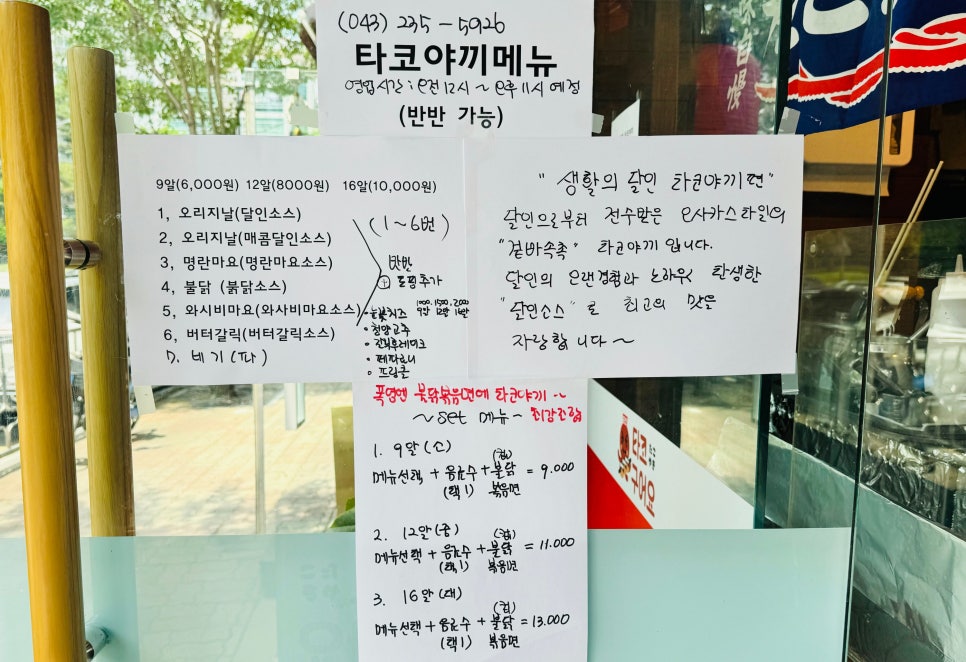 (043) 235-5926
타코야끼메뉴
영업시간 : 오전 12시 ~ 오후 11시 예정
(반반 가능)
9알(6,000원) 12알(8000원) 16알(10,000원)
1, 오리지날(달인소스)
2, 오리지날(매콤달인소스)
3, 명란마요(명란마요소스)
4, 불닭 (붉닭소스)
5, 와시비마요(와사비마요소스)
6, 버터갈릭(버터갈릭소스)
7. 네기(파)
(1~6번)
반반
+ 토핑추가
1000, 1500, 2000
9알 12알 16알
청양고추
"생활의 달인 타코야끼편"
달인으로부터 전수받은 오사카스타일의
"겉바속촉" 타코야끼 입니다.
달인의 오랜경험과 노하우로 탄생한
"달인소스"로 최고의 맛을
자랑합니다~
폭염엔 불닭볶음면에 타코야끼~
~set 메뉴~ 최강조합
1. 9알(소)
메뉴선택 + 음료수(택1) + (컵)불닭볶음면 = 9.000
2. 12알(중)
메뉴선택 + 음료수(택1) + (컵)불닭볶음면 = 11.000
3. 16알(대)
메뉴선택 + 음료수(택1) + (컵)불닭볶음면 = 13.000
타코
구어요
自慢